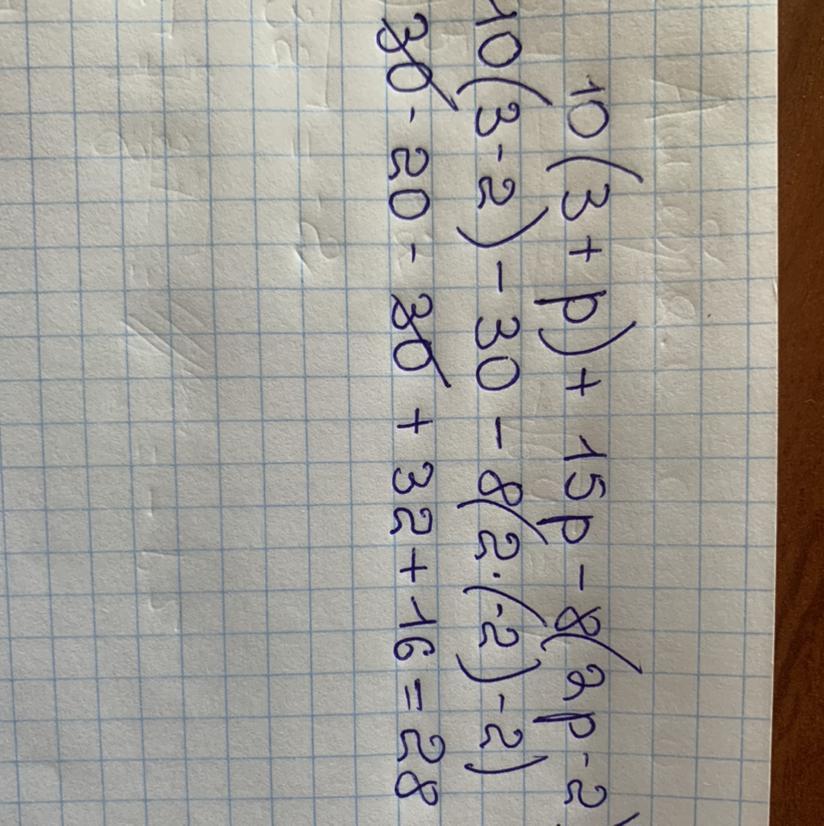 10(3+p)+15p-8(2p-2)
10(3-2)-30-8(2·(-2)-2)
30-20-30+32+16=28